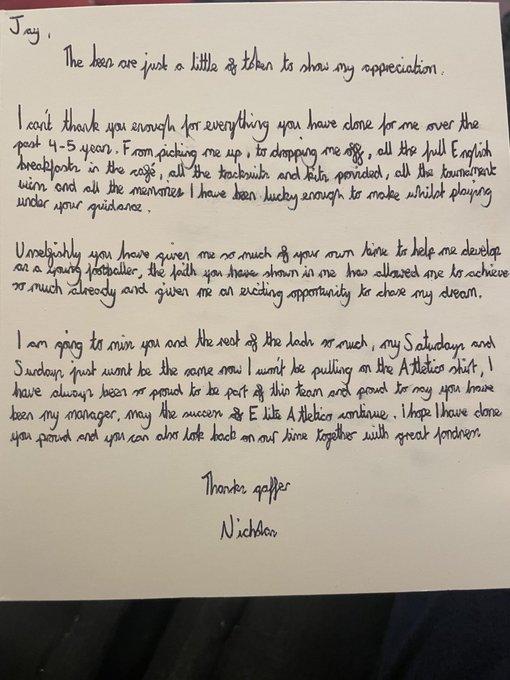 Jay,
The beers are just a little of token to show my appreciation.
I can't thank you enough for everything you have done for me over the
past 4-5 years. From picking me up, to dropping me off, all the full English
breakfasts in the café, all the tracksuits and kits provided, all the tournament
wins and all the memories I have been lucky enough to make whilst playing
under your guidance.
Unselfishly you have given me so much of your own time to help me develop
as a young footballer, the faith you have shown in me has allowed me to achieve
so much already and given me an exciting opportunity to chase my dream.
I am going to miss you and the rest of the lads so much, my Saturdays and
Sundays just wont be the same now I won't be pulling on the Atletico shirt, I
have always been so proud to be part of this team and proud to say you have
been my manager, may the success of Elite Atletico continue. I hope I have done
you proud and you can also look back on our time together with great fondness.
Thanks gaffer
Nicholas